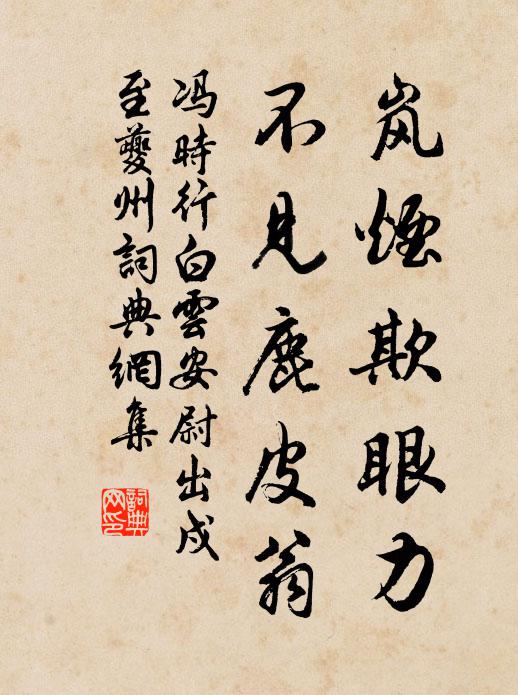 岚煙欺眼力
不见鹿皮翁
冯時行白雲安尉出戍
至夔州詞典網集
詞典
网印